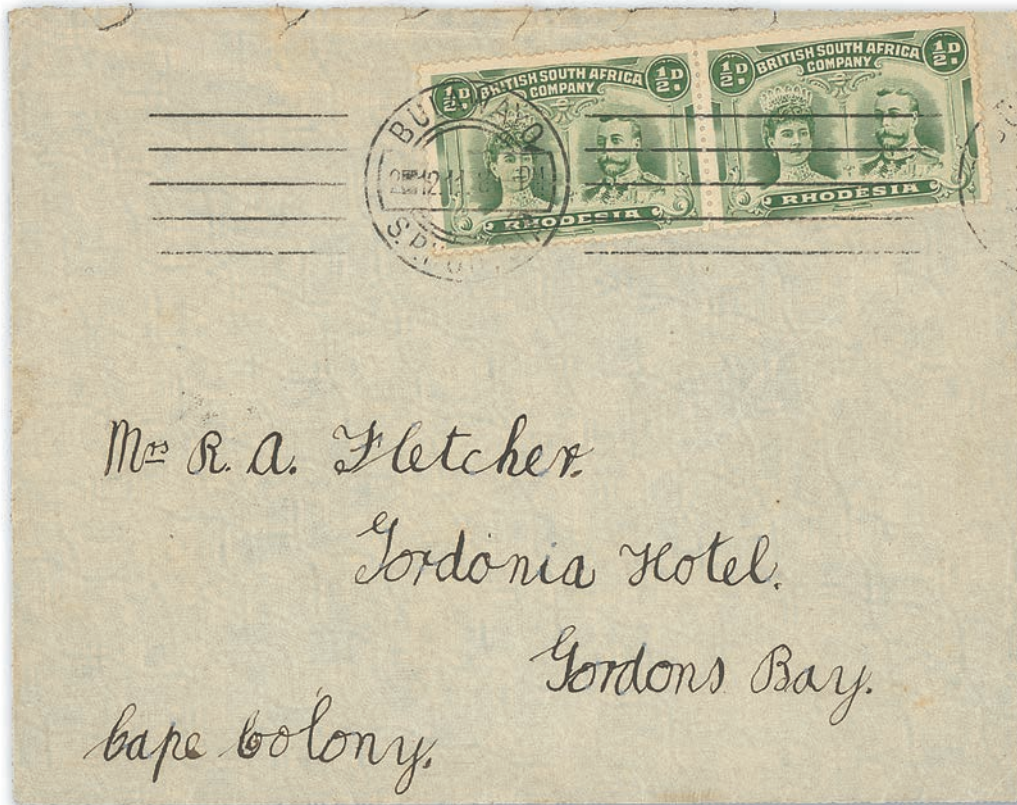 ½D BRITISH SOUTH AFRICA COMPANY ½D
RHODESIA
½D BRITISH SOUTH AFRICA COMPANY ½D
RHODESIA
BULAWAYO
12.11
Mrs R. A. Fletcher.
Gordonia Hotel.
Gordons Bay.
Cape Colony.